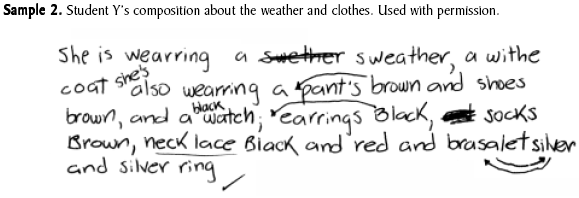 Sample 2. Student Y's composition about the weather and clothes. Used with permission.
She is wearring a swether sweather, a withe
coat she's also wearring a pant's brown and shoes
brown, and a black watch; earrings Black, socks
Brown, neck lace Black and red and brasalet silver
and silver ring